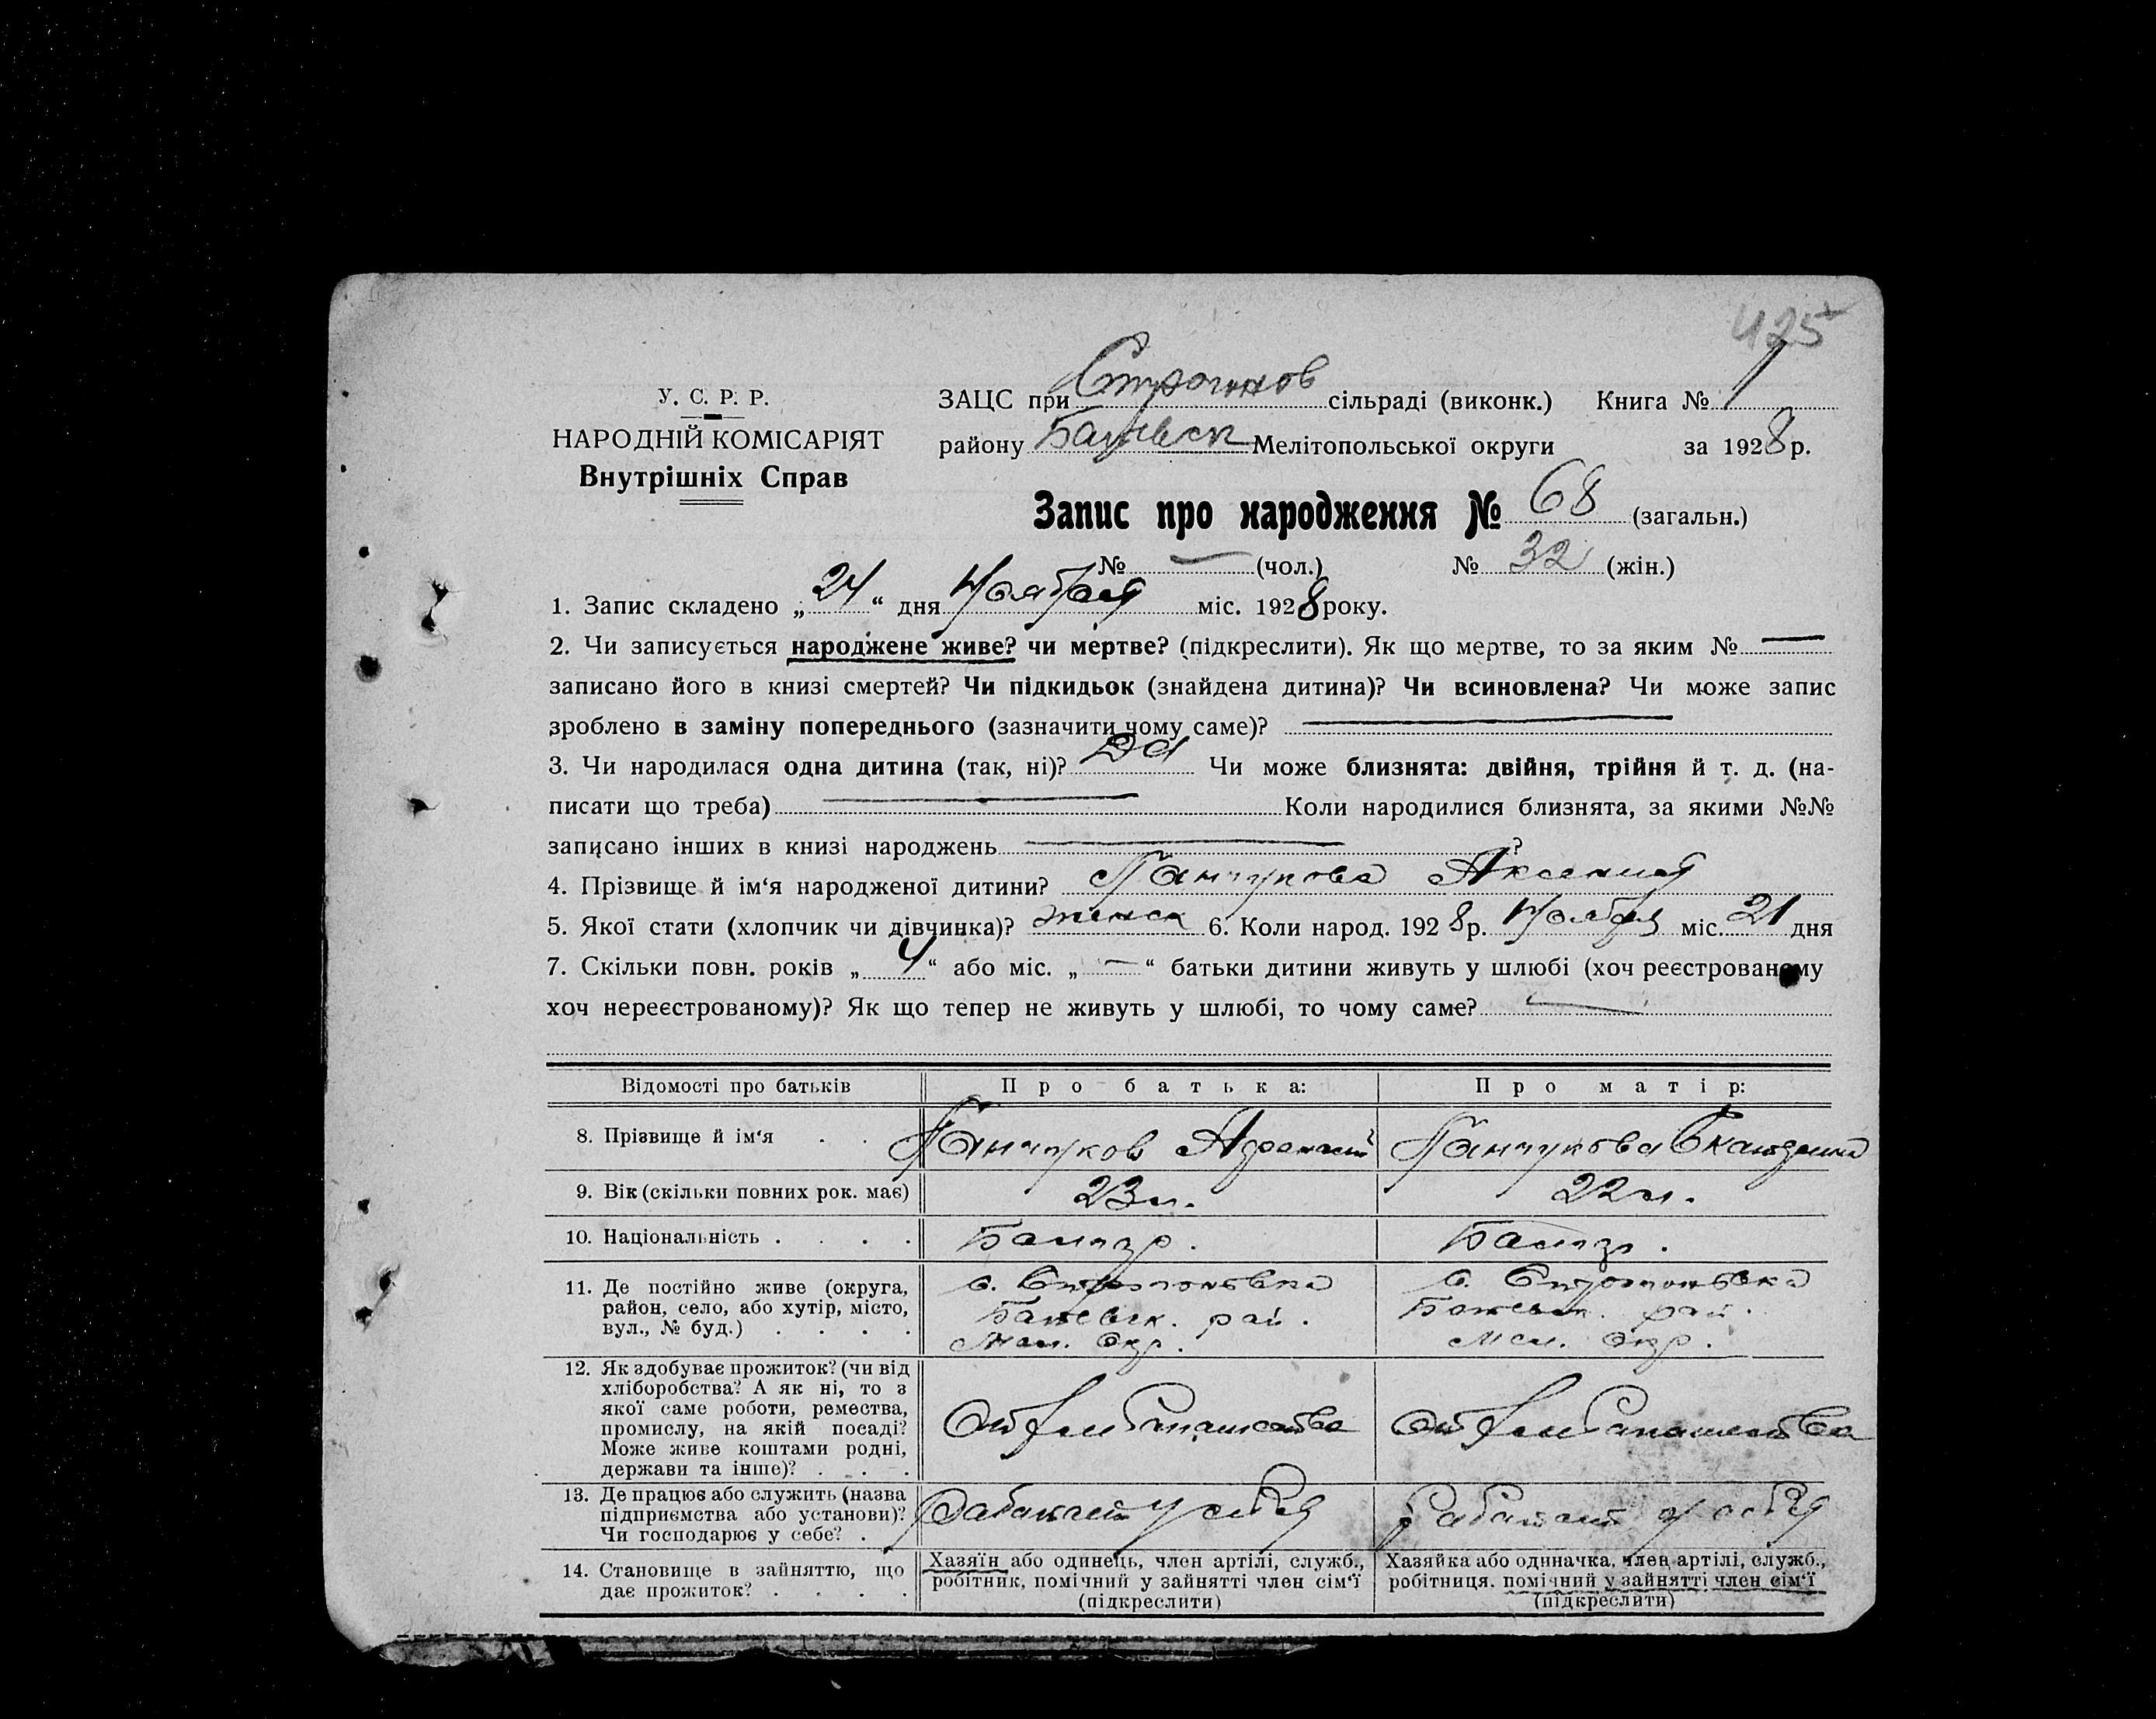 425
У. С. Р. Р.
НАРОДНІЙ КОМІСАРІЯТ
Внутрішніх Справ
ЗАЦС при Строганов сільраді (виконк.) Книга № 1
району Мелітопольської округи за 1928 р.
Запис про народження № 68 (загальн.)
№ — (чол.) № 32 (жін.)
1. Запис складено „24“ дня Ноября міс. 1928 року.
2. Чи записується народжене живе? чи мертве? (підкреслити). Як що мертве, то за яким № —
записано його в книзі смертей? Чи підкидьок (знайдена дитина)? Чи всиновлена? Чи може запис
зроблено в заміну попереднього (зазначити чому саме)? —
3. Чи народилася одна дитина (так, ні)? Да Чи може близнята: двійня, трійня й т. д. (на-
писати що треба) — Коли народилися близнята, за якими №№
записано інших в книзі народжень — ?
4. Прізвище й ім‘я народженої дитини? Ганчукова Аксения
5. Якої стати (хлопчик чи дівчинка)? женск 6. Коли народ. 1928 р. Ноября міс. 21 дня
7. Скільки повн. років „4“ або міс. „—“ батьки дитини живуть у шлюбі (хоч реєстрованому
хоч нереєстрованому)? Як що тепер не живуть у шлюбі, то чому саме? —
Відомості про батьків Про батька: Про матір:
8. Прізвище й ім‘я . . Ганчуков Афанасий Ганчукова
9. Вік (скільки повних рок. має) 23 л. 22 л.
10. Національність . . . . Болгар. Болгар.
11. Де постійно живе (округа, район, село, або хутір, місто, вул., № буд.) . . . . с. Строгоновка рай. Мел. Окр. с. Строгоновка рай. Мел. Окр.
12. Як здобуває прожиток? (чи від хліборобства? А як ні, то з якої саме роботи, ремества, промислу, на якій посаді? Може живе коштами родні, держави та інше)? . . . От От
13. Де працює або служить (назва підприємства або установи)? Чи господарює у себе? . Работает у себя Работает у себя
14. Становище в зайняттю, що дає прожиток? . . . . Хазяїн або одинець, член артілі, служб., робітник, помічний у зайнятті член сім‘ї (підкреслити) Хазяйка або одиначка, член артілі, служб., робітниця, помічний у зайнятті член сім‘ї (підкреслити)